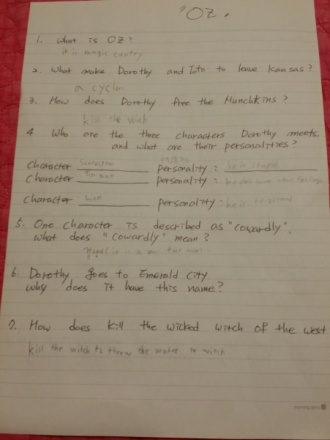 "OZ.
1. What is OZ?
it is magic country
2. What make Dorothy and Toto to leave Kansas?
a cyclon
3. How does Dorothy free the Munchkins?
kill the witch
4. Who are the three characters Dorothy meets
and what are their personalities?
Character personality: he is stupid
Character Tin man personality:
Character Lion personality: he is
5. One character is described as "cowardly".
what does "cowardly" mean?
6. Dorothy goes to Emerald City
why does it have this name?
7. How does kill the wicked witch of the west
kill the witch to throw the water to witch